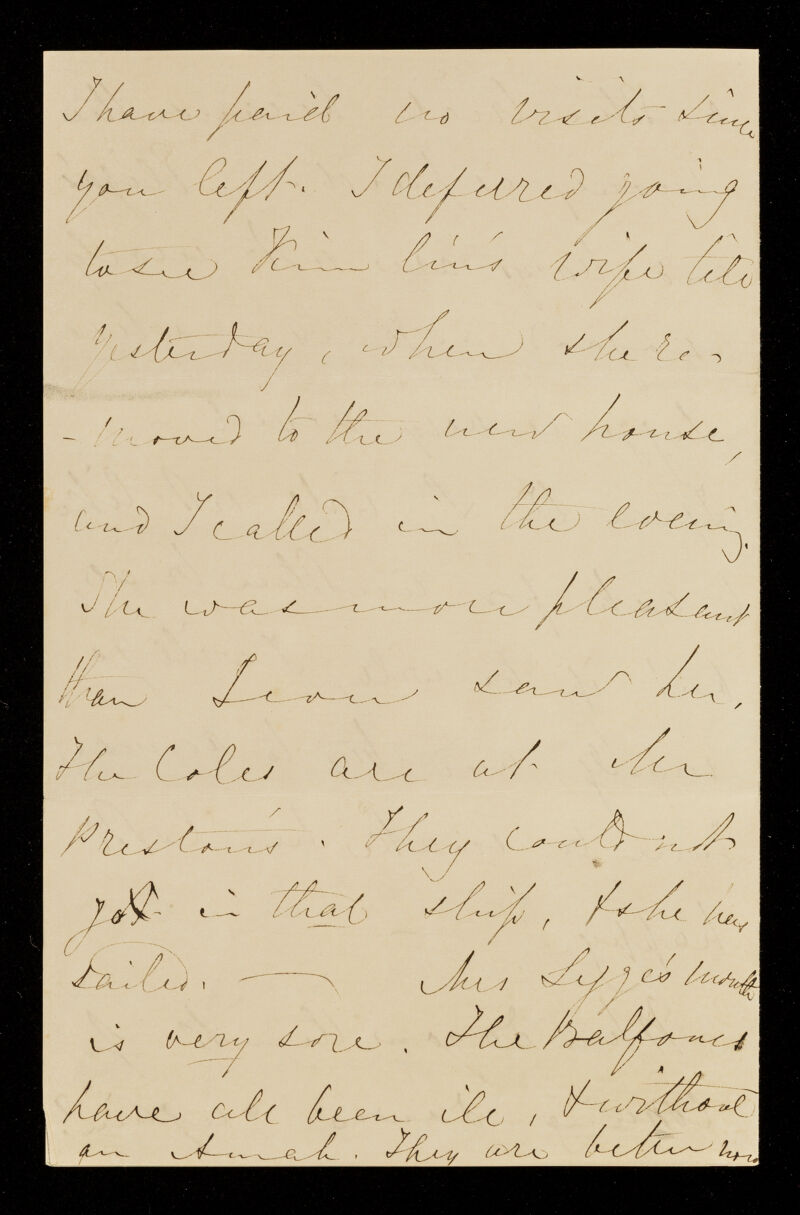 I have paid no visits since
you left. I deferred going
to see Kim lin's wife till
yesterday, when she re-
-moved to the new house,
and I called in the evening.
She was more pleasant
than I ever saw her.
The Coles are at Mr
Preston's. They could not
go in that ship, & she has
sailed. — Mrs Legge's mouth
is very sore. The Balfours
have all been ill, & without
an Amah. They are better now